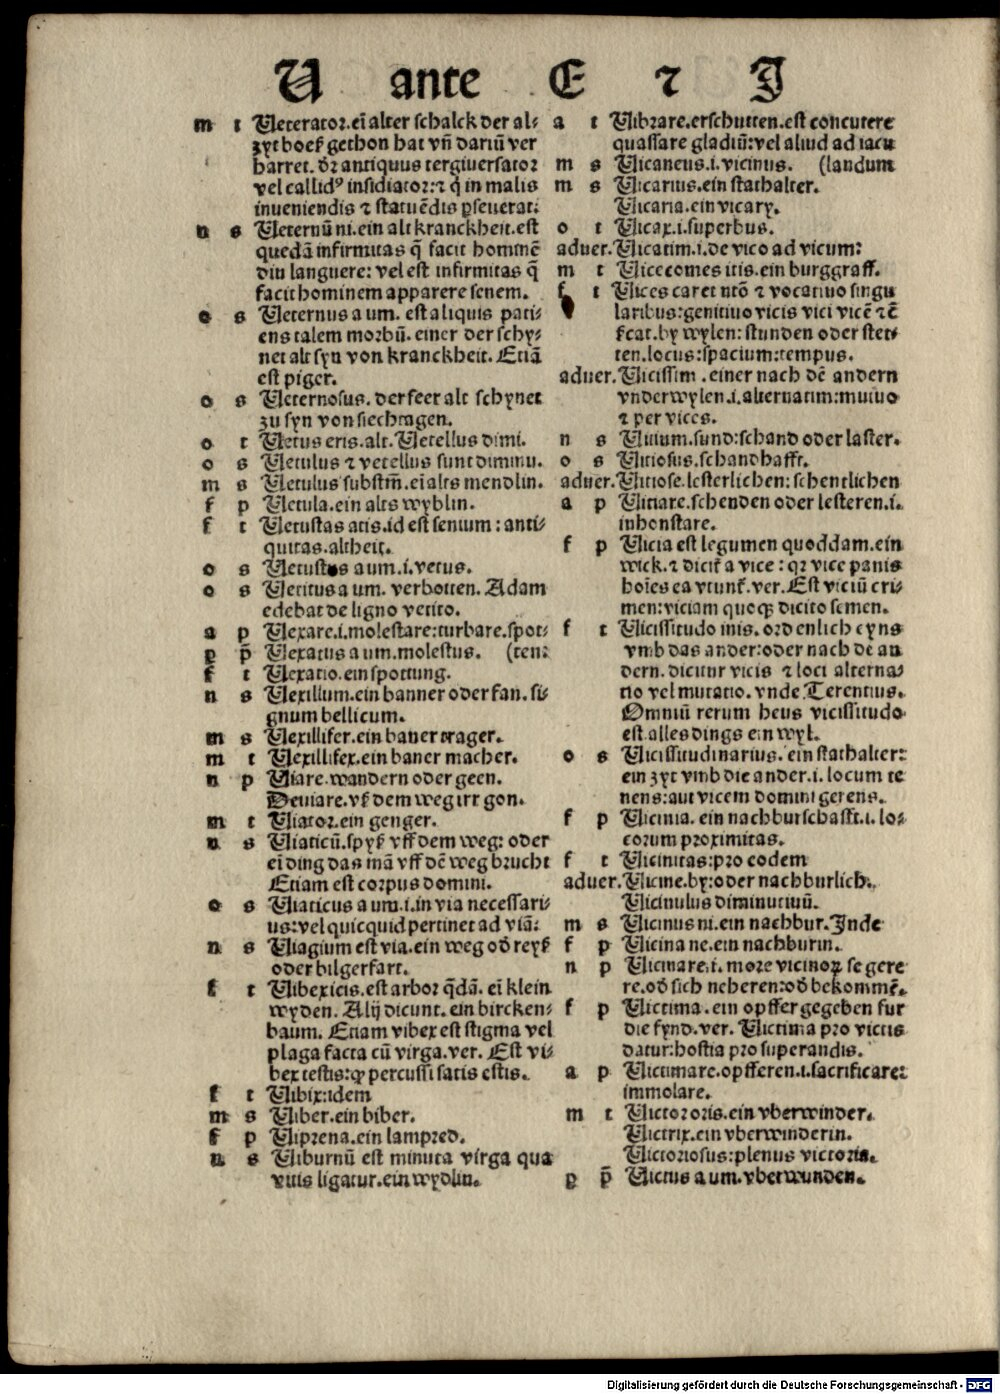 U ante E ⁊ J
m t Ueterator.eī alter schalck der al⸗
zyt boeß gethon hat vñ dariñ ver
harret. d̛z antiquus tergiuersator
vel callidꝰ insidiator:⁊ q̄ in malis
inueniendis ⁊ statuēdis ꝑseuerat:
n s Ueternū ni.ein alt kranckheit.est
quedā infirmitas q̄ facit hominē
diu languere: vel est infirmitas q̄
facit hominem apparere senem.
o s Ueternus a um. est aliquis pati⸗
ens talem morbū. einer der schy⸗
net alt syn von kranckheit. Etiā
est piger.
o s Ueternosus. der seer alt schynet
zu syn von siechtagen.
o t Uetus eris.alt. Uetellus dimi.
o s Uetulus ⁊ vetellus sunt diminu.
m s Uetulus substm̄. eī alts mendlin.
f p Uetula.ein alts wyblin.
f t Uetustas atis.id est senium: anti⸗
quitas.altheit.
o s Uetustus a um.i.vetus.
o s Uetitus a um. verbotten. Adam
edebat de ligno vetito.
a p Uexare.i.molestare:turbare.spot⸗
p p̄ Uexatus a um.molestus. (ten:
f t Uexatio.ein spottung.
n s Uexillum.ein banner oder fan. si⸗
gnum bellicum.
m s Uexillifer.ein baner trager.
m t Uexillifex.ein baner macher.
n p Uiare.wandern oder geen.
Deuiare.vß dem weg irr gon.
m t Uiator.ein genger.
n s Uiaticū.spyß vff dem weg: oder
eī ding das mā vff dē weg brucht
Etiam est corpus domini.
o s Uiaticus a um.i.in via necessari⸗
us:vel quicquid pertinet ad viā:
n s Uiagium est via.ein weg od̛ reyß
oder bilgerfart.
f t Uibex icis.est arbor q̄dā. eī klein
wyden. Alij dicunt. ein bircken⸗
baum. Etiam vibex est stigma vel
plaga facta cū virga.ver. Est vi⸗
bex testis:ꝙ percussi satis estis.
f t Uibix:idem
m s Uiber.ein biber.
f p Uiprena.ein lampred.
n s Uiburnū est minuta virga qua
vitis ligatur.ein wydlin.
a t Uibrare.erschutten.est concutere
quassare gladiū:vel aliud ad iacu
m s Uicaneus.i.vicinus. (landum
m s Uicarius.ein stathalter.
Uicaria.ein vicary.
o t Uicax.i.superbus.
aduer. Uicatim.i.de vico ad vicum:
m t Uicecomes itis.ein burggraff.
f t Uices caret ntō ⁊ vocatiuo singu
laribus:genitiuo vicis vici vicē ⁊c̄
by wylen: stunden oder stet⸗
ten.locus:spacium:tempus.
aduer. Uicissim .einer nach dē andern
vnderwylen.i.alternatim:mutuo
⁊ per vices.
n s Uitium.sund:schand oder laster.
o s Uitiosus.schandhafft.
aduer. Uitiose.lesterlichen: schentlichen
a p Uitiare.schenden oder lesteren.i.
inhonstare.
f p Uicia est legumen quoddam.ein
wick.⁊ dicit̄ a vice : qꝛ vice panis
hoīes ea vtunt̄.ver.Est viciū cri⸗
men:viciam quoqꝫ dicito semen.
f t Uicissitudo inis. ordenlich eyns
vmb das ander:oder nach dē an
dern. dicitur vicis ⁊ loci alterna⸗
tio vel mutatio. vnde.Terentius.
Omniū rerum heus vicissitudo
est.alles dings ein wyl.
o s Uicissitudinarius. ein stathalter:
ein zyt vmb die ander.i. locum te
nens:aut vicem domini gerens.
f p Uicinia. ein nachburschafft.i. lo⸗
corum proximitas.
f t Uicinitas:pro eodem
aduer. Uicine.by:oder nachburlich.
Uicinulus diminutiuū.
m s Uicinus ni.ein nachbur.Inde
f p Uicina ne.ein nachburin.
n p Uicinare.i. more vicinoꝝ se gere
re.od̛ sich neheren:od̛ bekommē.
f p Uictima. ein opffer gegeben fur
die fynd.ver. Uictima pro victis
datur:hostia pro superandis.
a p Uictimare.opfferen.i.sacrificare:
immolare.
m t Uictor oris.ein vberwinder.
Uictrix.ein vberwinderin.
Uictoriosus:plenus victoris.
p p̄ Uictus a um.vberwunden.
Digitalisierung gefördert durch die Deutsche Forschungsgemeinschaft - DFG